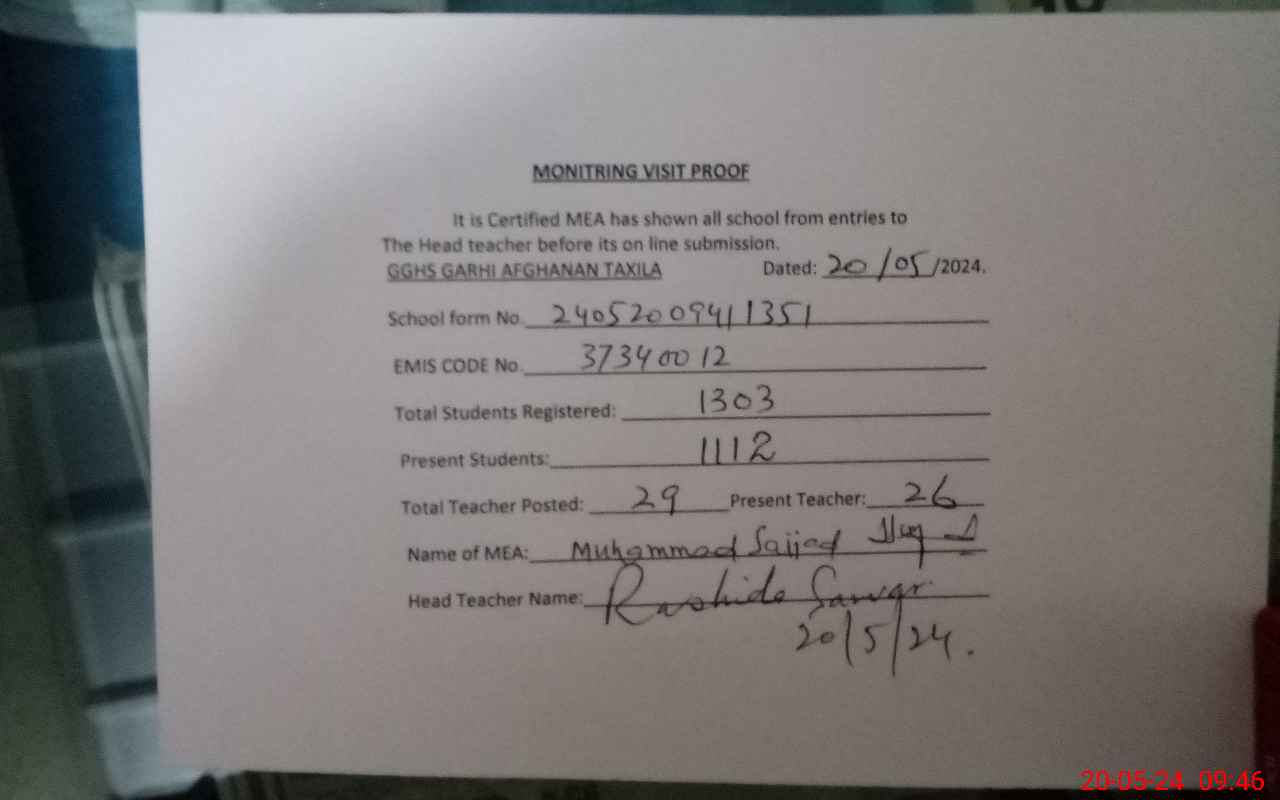 MONITRING VISIT PROOF
It is Certified MEA has shown all school from entries to
The Head teacher before its on line submission.
GGHS GARHI AFGHANAN TAXILA Dated: 20/05/2024.
School form No. 24052009411351
EMIS CODE No. 37340012
Total Students Registered: 1303
Present Students: 1112
Total Teacher Posted: 29 Present Teacher: 26
Name of MEA: Muhammad Sajjad
Head Teacher Name: Rashida Sarwar
20/5/24.
20-05-24 09:46